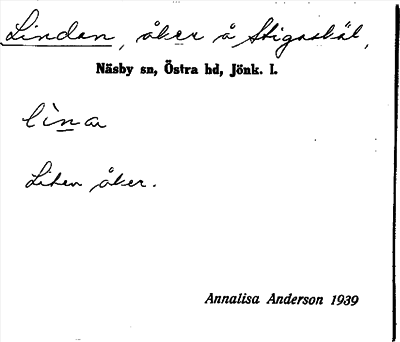 Lindan, åker å Stigasbäl,
Näsby sn, Östra hd, Jönk. l.
lìna
Liten åker.
Annalisa Anderson 1939